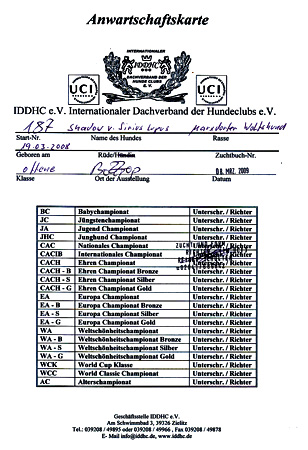 Anwartschaftskarte
INTERNATIONALER
IDDHC
DACHVERBAND DER
HUNDECLUBS
E. V.
UCI
UCI
IDDHC e.V. Internationaler Dachverband der Hundeclubs e.V.
187 Shadow v. Sirius Lupus Marsdorfer Wolfshund
Start-Nr. Name des Hundes Rasse
19.03.2008
Geboren am Rüde/Hündin Zuchtbuch-Nr.
offene Bottrop 08. MRZ. 2009
Klasse Ort der Ausstellung Datum
BC Babychampionat Unterschr. / Richter
JC Jüngstenchampionat Unterschr. / Richter
JA Jugend Championat Unterschr. / Richter
JHC Junghund Championat Unterschr. / Richter
CAC Nationales Championat Unterschr. / Richter
CACIB Internationales Championat Unterschr. / Richter
CACH Ehren Championat Unterschr. / Richter
CACH - B Ehren Championat Bronze Unterschr. / Richter
CACH - S Ehren Championat Silber Unterschr. / Richter
CACH - G Ehren Championat Gold Unterschr. / Richter
EA Europa Championat Unterschr. / Richter
EA - B Europa Championat Bronze Unterschr. / Richter
EA - S Europa Championat Silber Unterschr. / Richter
EA - G Europa Championat Gold Unterschr. / Richter
WA Weltschönheitschampionat Unterschr. / Richter
WA - B Weltschönheitschampionat Bronze Unterschr. / Richter
WA - S Weltschönheitschampionat Silber Unterschr. / Richter
WA - G Weltschönheitschampionat Gold Unterschr. / Richter
WCK World Cup Klasse Unterschr. / Richter
WCC World Classic Championat Unterschr. / Richter
AC Alterschampionat Unterschr. / Richter
Geschäftsstelle IDDHC e.V.
Am Schwimmbad 3, 39326 Zielitz
Tel.: 039208 / 49895 oder 039208 / 49966, Fax 039208 / 49878
E- Mail info@iddhc.de, www.iddhc.de